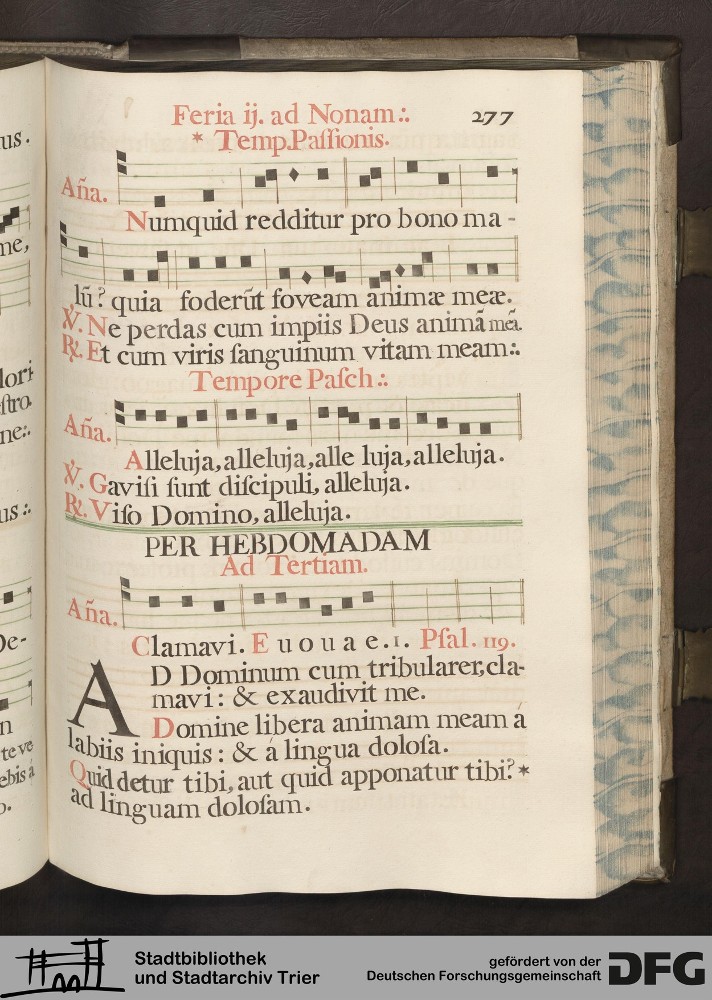 Feria ij. ad Nonam:.
277
* Temp. Paſſionis.
Aña.
Numquid redditur pro bono ma-
lũ? quia foderũt foveam animæ meæ.
℣. Ne perdas cum impiis Deus animã meã.
℟. Et cum viris ſanguinum vitam meam:.
Tempore Paſch:.
Aña.
Alleluja, alleluja, alle luja, alleluja.
℣. Gaviſi ſunt diſcipuli, alleluja.
℟. Viſo Domino, alleluja.
PER HEBDOMADAM
Ad Tertiam.
Aña.
Clamavi. E u o u a e. 1. Pſal. 119.
AD Dominum cum tribularer, cla-
mavi: & exaudivit me.
Domine libera animam meam a
labiis iniquis: & á lingua doloſa.
Quid detur tibi, aut quid apponatur tibi? *
ad linguam doloſam.
us.
me,
lori
ſtro.
ne:.
us:.
De-
n
te ve
ebis á
o.
Stadtbibliothek
und Stadtarchiv Trier
gefördert von der
Deutschen Forschungsgemeinschaft
DFG